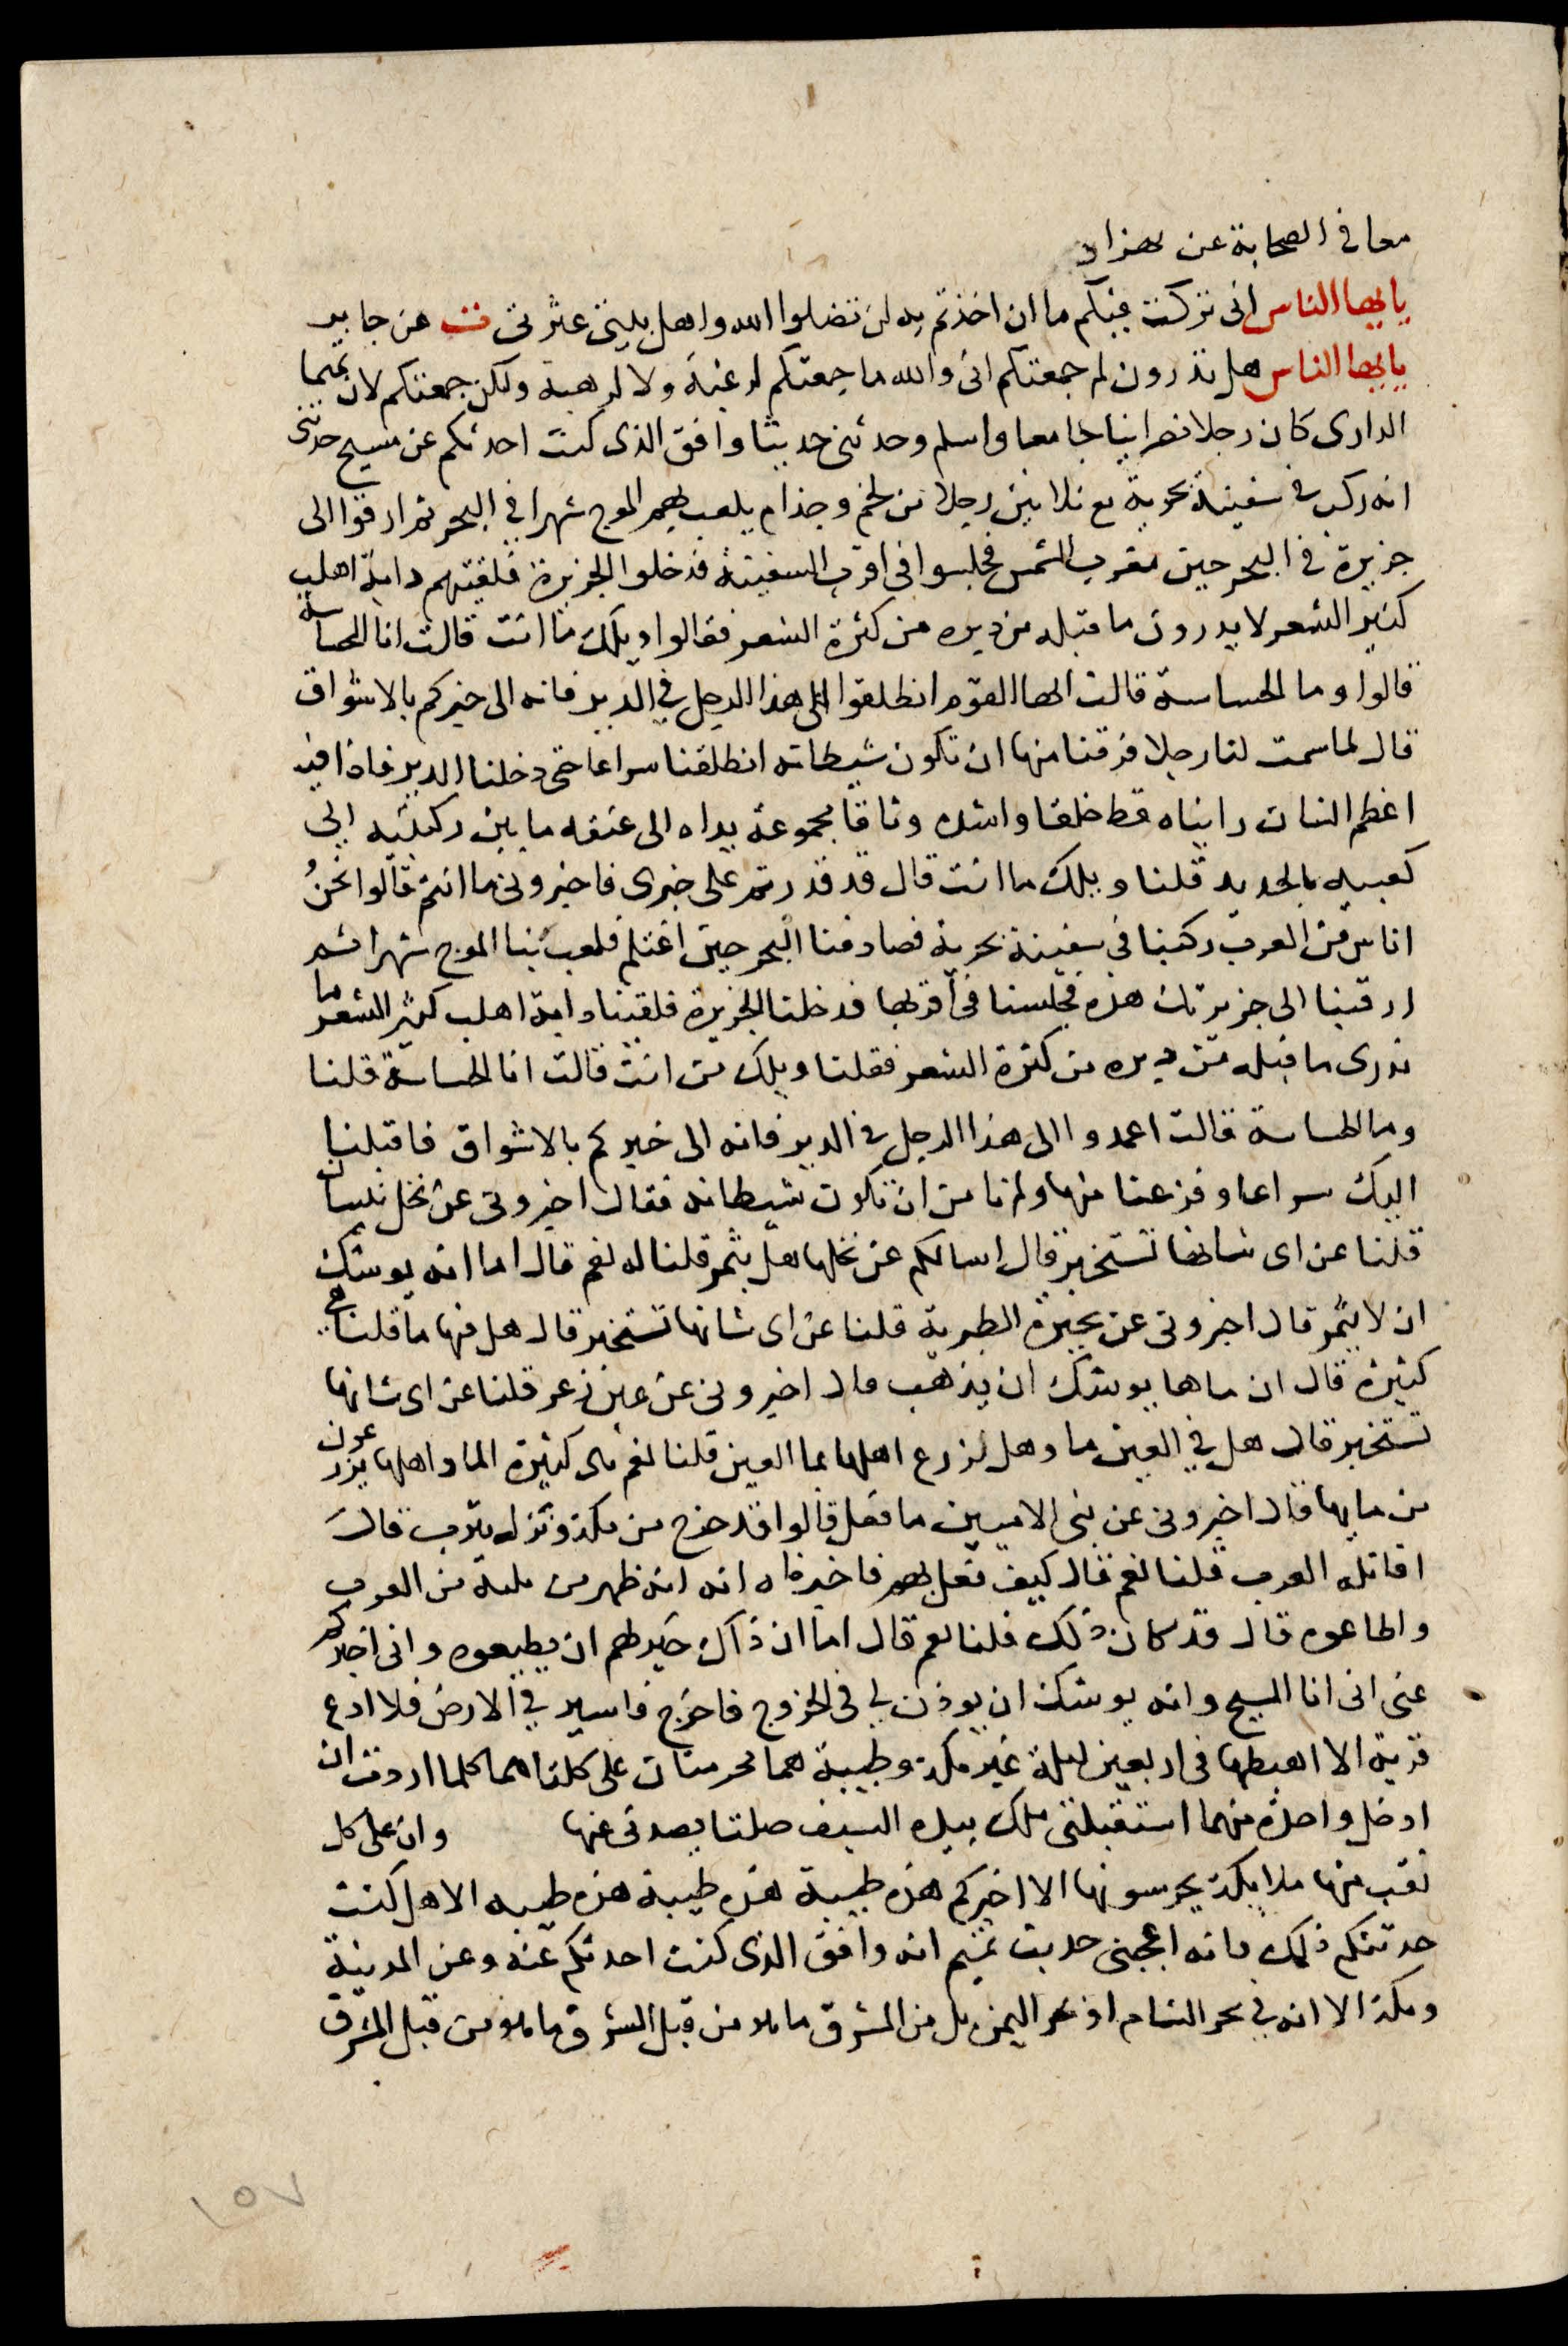 معا في الصحابة عن هزاد
يايها الناس انى تركت فيكم ما ان اخذتم به لن تضلوا الله واهل بيتى عترتى ت عن جابر
يايها الناس هل تدرون لم جمعتكم انى والله ما جمعتكم لرغبة ولا لرهبة ولكن جمعتكم لان تميما
الدارى كان رجلا نصرانيا فجا معا واسلم وحدثنى حديثا وافق الذى كنت احدثكم عن مسيح حدثنى
انه ركب في سفينة بحرية مع ثلاثين رجلا من لخم وجذام يلعب بهم الموج شهرا في البحر ثم ارفوا الى
جزيرة في البحر حين مغرب الشمس فجلسوا فى اقرب السفينة فدخلوا الجزيرة فلقيتهم دابة اهلب
كثير الشعر لا يدرون ما قبله من دبره من كثرة الشعر فقالوا ويلك ما انت قالت انا الجساسة
قالوا وما الجساسة قالت ايها القوم انطلقوا الى هذا الرجل في الدير فانه الى خبركم بالاشواق
قال لما سمت لنا رجلا فرقنا منها ان تكون شيطانه انطلقنا سراعا حتى دخلنا الدير فاذا فيه
اعظم انسان رايناه قط خلقا واشده وثاقا مجموعة يداه الى عنقه ما بين ركبتيه الى
كعبيه بالحديد قلنا ويلك ما انت قال قد قدرتم على خبرى فاخبرونى ما انتم قالوا نحنُ
اناس من العرب ركبنا في سفينة بحرية فصادفنا البحر حين اغتلم فلعب بنا الموج شهرا ثم
ارفينا الى جزيرتك هذه فجلسنا فى اقربها فدخلنا الجزيرة فلقينا دابة اهلب كثير الشعر ما
ندرى ما قبله من دبره من كثرة الشعر فقلنا ويلك من انت قالت انا الجساسة قلنا
وما الجساسة قالت اعمدوا الى هذا الرجل في الدير فانه الى خبركم بالاشواق فاقبلنا
اليك سراعا وفزعنا منها ولم نا من ان تكون شيطانه فقال اخبرونى عن نخل بيسان
قلنا عن اى شانها تستخبر قال اسالكم عن نخلها هل يثمر قلنا له نعم قال اما انه يوشك
ان لا يثمر قال اخبرونى عن بحيرة الطبرية قلنا عن اى شانها تستخبر قال هل فيها ما قلنا هي
كثيرة قال ان ماها يوشك ان يذهب قال اخبرونى عن عين زعر قلنا عن اى شانها
تستخبر قال هل في العين ما وهل يزرع اهلها بما العين قلنا نعم هى كثيرة الما واهلها يزرعون
من مايها قال اخبرونى عن نبى الاميين ما فعل قالوا قد خرج من مكة ونزل يثرب قال
اقاتله العرب قلنا نعم قال كيف فعل بهم فاخبرناه انه ظهر من يليه من العرب
واطاعوه قال قد كان ذلك قلنا نعم قال اما ان ذاك خير لهم ان يطيعوه وانى اخبركم
عنى انى انا المسيح وانه يوشك ان يوذن لي فى الخروج فاخرج فاسير في الارض فلا ادع
قرية الا اهبطها فى اربعين ليلة غير مكة وطيبة هما محرمتان على كلتاهما كلما اردت ان
ادخل واحدة منهما استقبلنى ملك بيده السيف صلتا يصدنى عنها وان على كل
نقب منها ملايكة يحرسونها الا اخبركم هذه طيبة هذه طيبة هذه طيبه الا هل كنت
حدثتكم ذلك فانه اعجبنى حديث تميم انه وافق الذى كنت احدثكم عنه وعن المدينة
ومكة الا انه في بحر الشام او بحر اليمن بل من المشرق ما هو من قبل المشرق ما هو من قبل المشرق
١٥٧